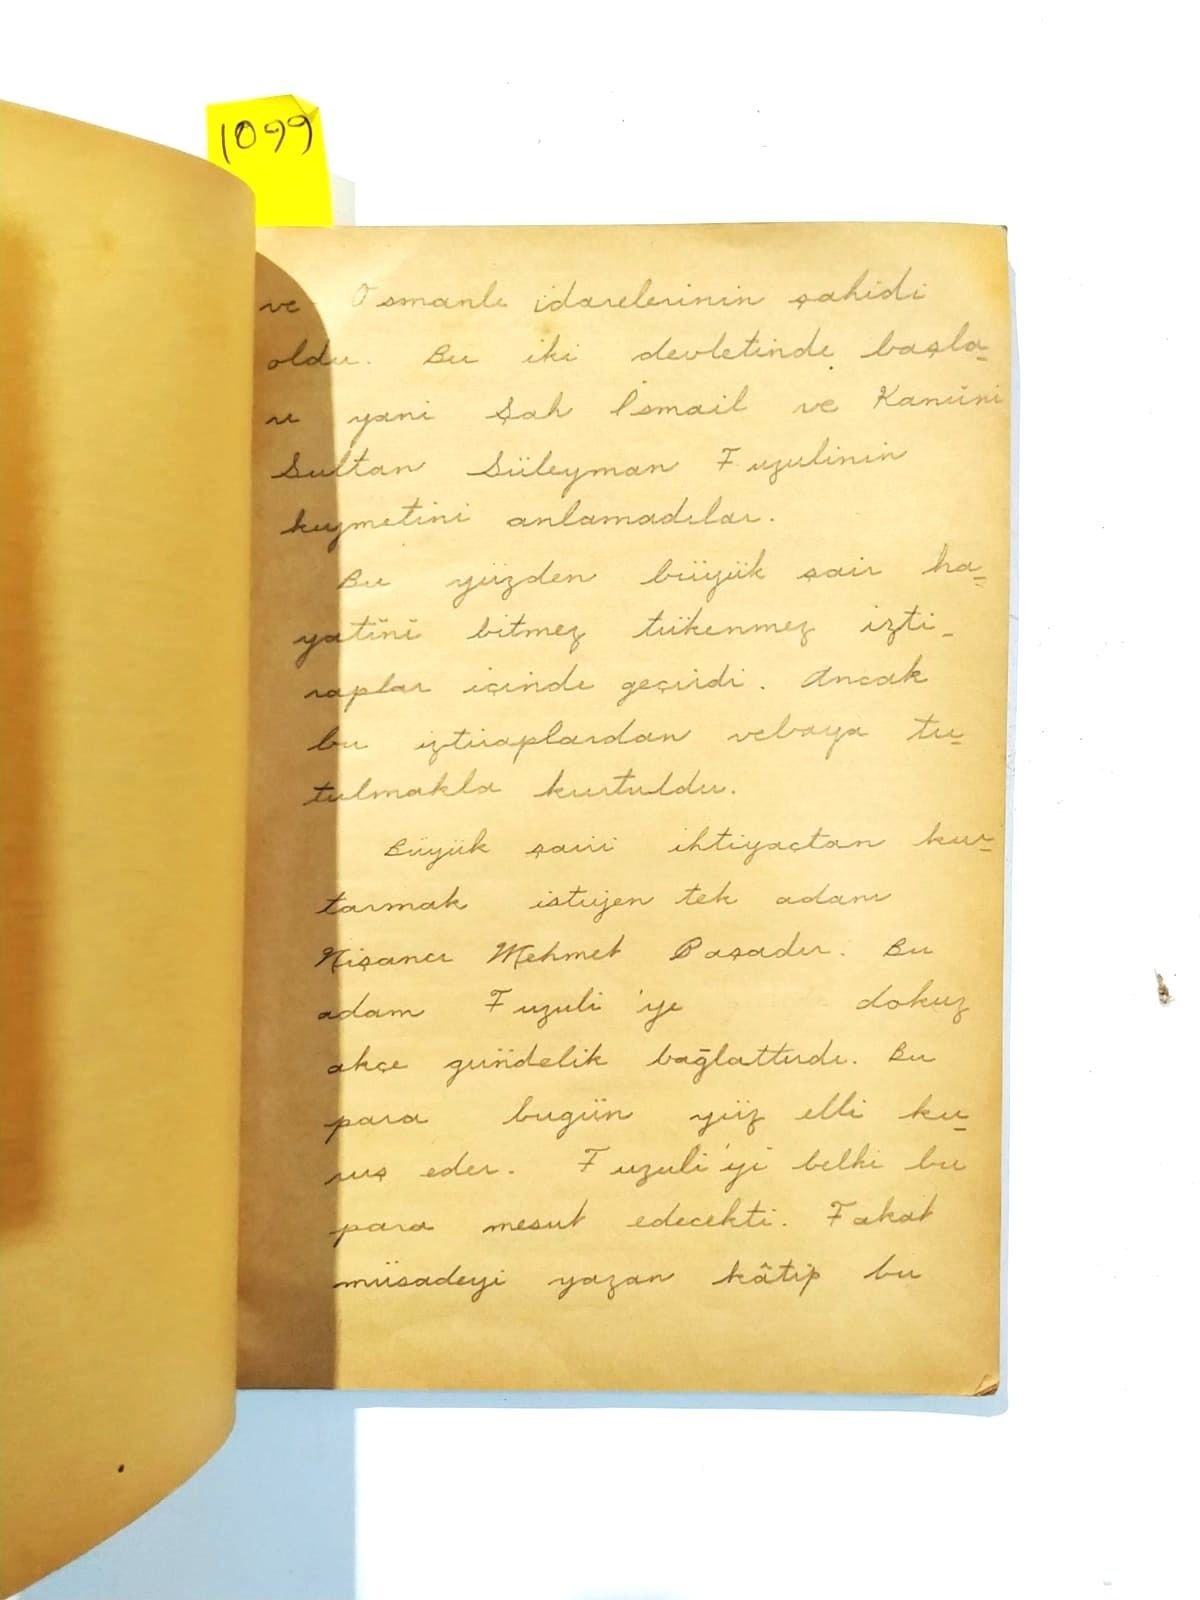 1099
ve Osmanlı idarelerinin şahidi
oldu. Bu iki devletinde başla-
rı yani Şah İsmail ve Kanûni
Sultan Süleyman Fuzulinin
kıymetini anlamadılar.
Bu yüzden büyük şair ha-
yatini bitmez tükenmez izti-
raplar içinde geçirdi. Ancak
bu iztiraplardan vebaya tu-
tulmakla kurtuldu.
Büyük şairi ihtiyaçtan kur-
tarmak istiyen tek adam
Nişancı Mehmet Paşadır. Bu
adam Fuzuli'ye dokuz
akçe gündelik bağlattırdı. Bu
para bugün yüz elli ku-
ruş eder. Fuzuli'yi belki bu
para mesut edecekti. Fakat
müsadeyi yazan kâtip bu